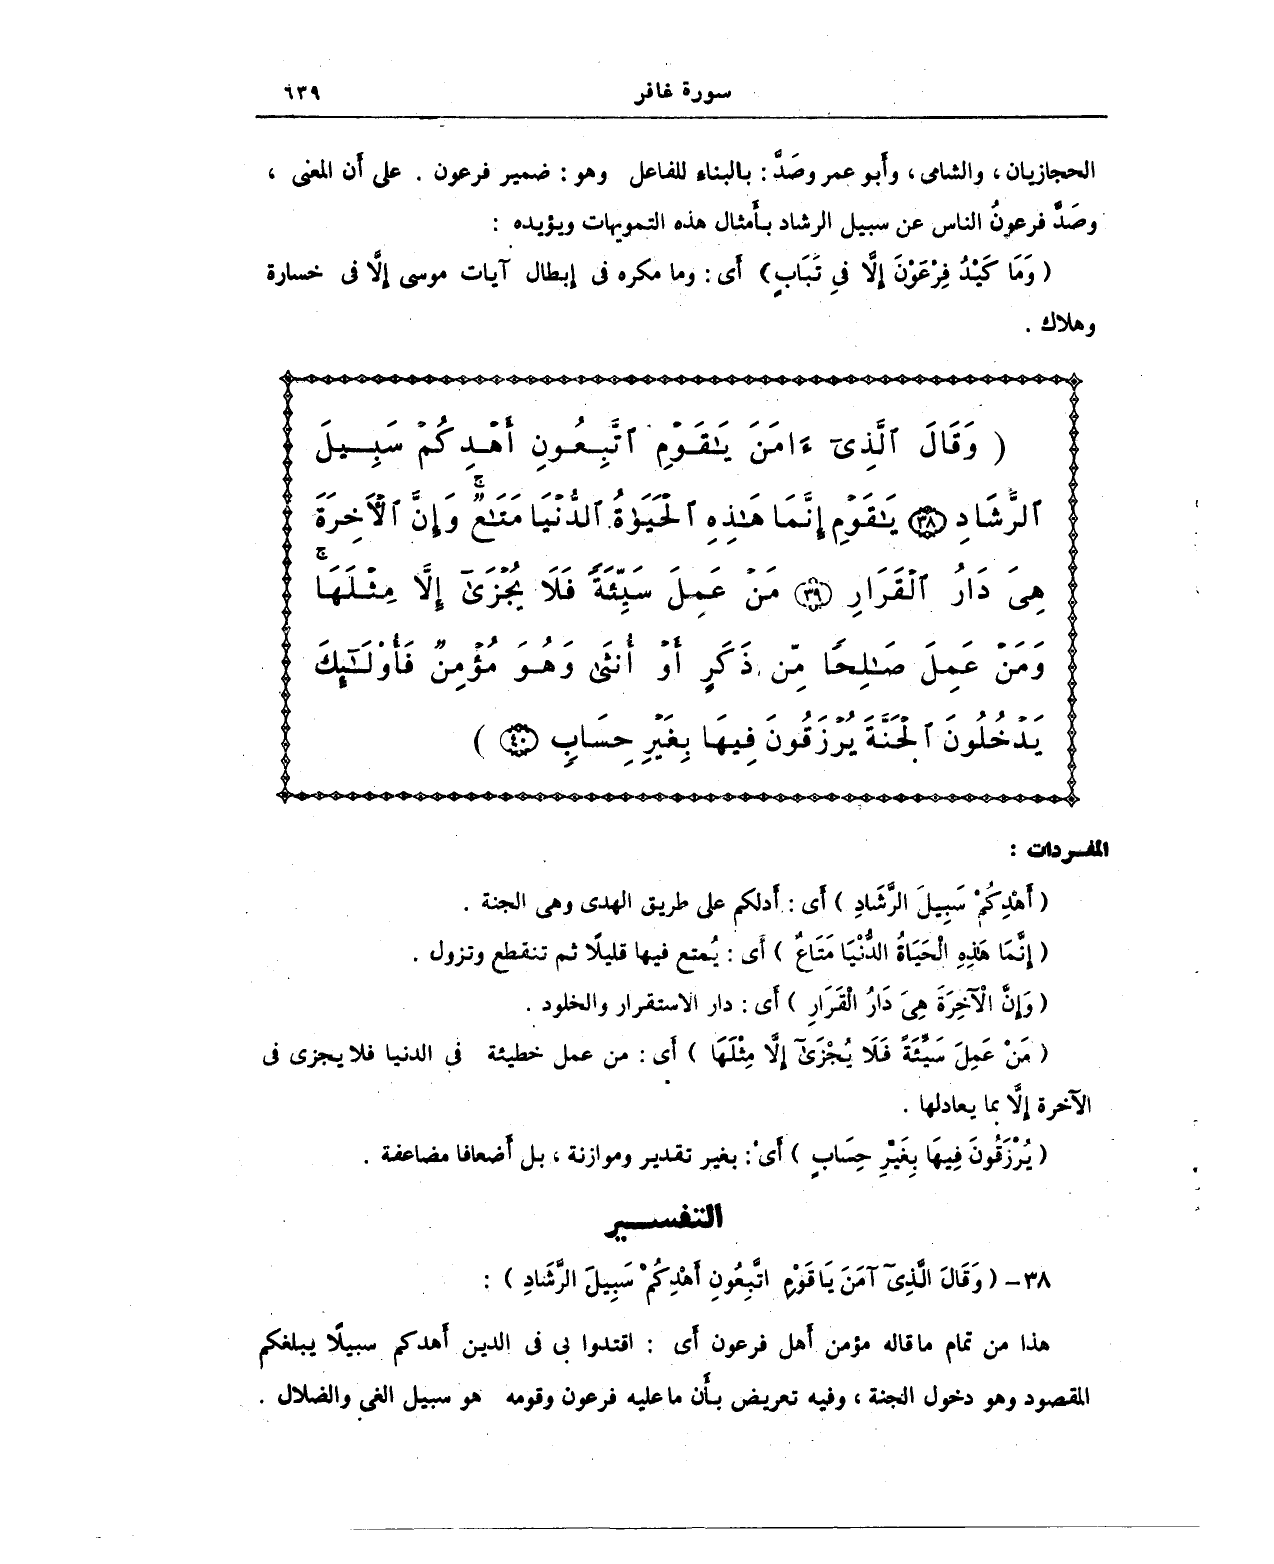 سورة غافر ٦٣٩
الحجازيان، والشامى، وأبو عمر وصَدَّ: بالبناء للفاعل وهو: ضمير فرعون . على أن المعنى ،
وصَدَّ فرعونُ الناس عن سبيل الرشاد بأمثال هذه التمويهات ويؤيده :
( وَمَا كَيْدُ فِرْعَوْنَ إِلَّا فِي تَبَابٍ ) أى: وما مكره فى إبطال آيات موسى إلَّا فى خسارة
وهلاك .
( وَقَالَ ٱلَّذِىٓ ءَامَنَ يَـٰقَوْمِ ٱتَّبِعُونِ أَهْدِكُمْ سَبِيلَ
ٱلرَّشَادِ ٣٨ يَـٰقَوْمِ إِنَّمَا هَـٰذِهِ ٱلْحَيَوٰةُ ٱلدُّنْيَا مَتَـٰعٌ ۖ وَإِنَّ ٱلْـَٔاخِرَةَ
هِىَ دَارُ ٱلْقَرَارِ ٣٩ مَنْ عَمِلَ سَيِّئَةً فَلَا يُجْزَىٰٓ إِلَّا مِثْلَهَا ۖ
وَمَنْ عَمِلَ صَـٰلِحًا مِّن ذَكَرٍ أَوْ أُنثَىٰ وَهُوَ مُؤْمِنٌ فَأُوْلَـٰٓئِكَ
يَدْخُلُونَ ٱلْجَنَّةَ يُرْزَقُونَ فِيهَا بِغَيْرِ حِسَابٍ ٤٠ )
المفـردات :
( أَهْدِكُمْ سَبِيلَ الرَّشَادِ ) أى: أدلكم على طريق الهدى وهى الجنة .
( إِنَّمَا هَذِهِ الْحَيَاةُ الدُّنْيَا مَتَاعٌ ) أى: يُمتع فيها قليلًا ثم تنقطع وتزول .
( وَإِنَّ الْآخِرَةَ هِيَ دَارُ الْقَرَارِ ) أى: دار الاستقرار والخلود .
( مَنْ عَمِلَ سَيِّئَةً فَلَا يُجْزَىٰٓ إِلَّا مِثْلَهَا ) أى: من عمل خطيئة فى الدنيا فلا يجزى فى
الآخرة إلَّا بما يعادلها .
( يُرْزَقُونَ فِيهَا بِغَيْرِ حِسَابٍ ) أى: بغير تقدير وموازنة ، بل أضعافا مضاعفة .
التفسـير
٣٨- ( وَقَالَ الَّذِىٓ آمَنَ يَا قَوْمِ اتَّبِعُونِ أَهْدِكُمْ سَبِيلَ الرَّشَادِ ) :
هذا من تمام ما قاله مؤمن أهل فرعون أى : اقتدوا بى فى الدين أهدكم سبيلًا يبلغكم
المقصود وهو دخول الجنة ، وفيه تعريض بأن ما عليه فرعون وقومه هو سبيل الغى والضلال .